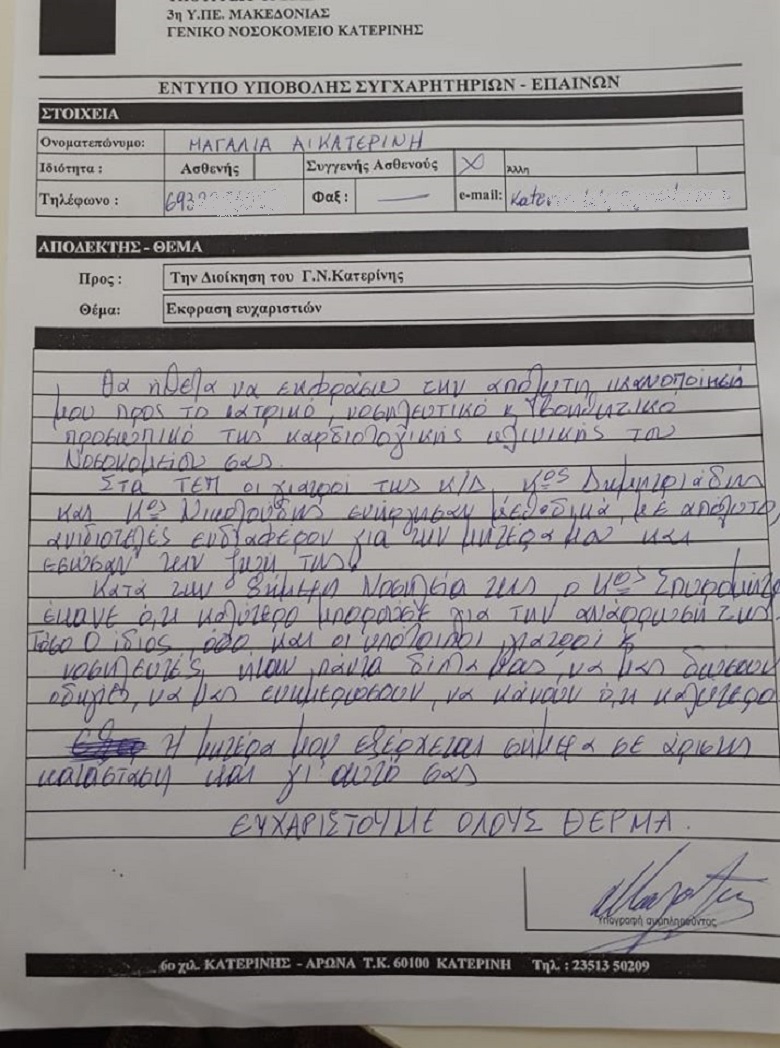 3η Υ.ΠΕ. ΜΑΚΕΔΟΝΙΑΣ
ΓΕΝΙΚΟ ΝΟΣΟΚΟΜΕΙΟ ΚΑΤΕΡΙΝΗΣ
ΕΝΤΥΠΟ ΥΠΟΒΟΛΗΣ ΣΥΓΧΑΡΗΤΗΡΙΩΝ - ΕΠΑΙΝΩΝ
ΣΤΟΙΧΕΙΑ
Ονοματεπώνυμο: ΜΑΓΑΛΙΑ ΑΙΚΑΤΕΡΙΝΗ
Ιδιότητα : Ασθενής Συγγενής Ασθενούς X Άλλη
Τηλέφωνο : 693 Φαξ : — e-mail: Kate
ΑΠΟΔΕΚΤΗΣ - ΘΕΜΑ
Προς : Την Διοίκηση του Γ.Ν.Κατερίνης
Θέμα: Εκφραση ευχαριστιών
Θα ήθελα να εκφράσω την απόλυτη ικανοποίησή
μου προς το ιατρικό, νοσηλευτικό & βοηθητικό
προσωπικό της καρδιολογικής κλινικής του
Νοσοκομείου σας.
Στα ΤΕΠ οι γιατροί της Κ/Δ, κος Δημητριάδης
και κος Νικολούδης ενήργησαν μεθοδικά, με απόλυτο,
ανιδιοτελές ενδιαφέρον για την μητέρα μου και
έσωσαν την ζωή της!
Κατά την 8ήμερη Νοσηλεία της, ο κος
έκανε ό,τι καλύτερο μπορούσε για την ανάρρωσή της.
Τόσο ο ίδιος, όσο και οι υπόλοιποι γιατροί &
νοσηλευτές, ήταν πάντα δίπλα μας, να μας δώσουν
οδηγίες, να μας ενημερώσουν, να κάνουν ό,τι καλύτερο
Η μητέρα μου εξέρχεται σήμερα σε άριστη
κατάσταση και γι' αυτό σας
ΕΥΧΑΡΙΣΤΟΥΜΕ ΟΛΟΥΣ ΘΕΡΜΑ.
Υπογραφή συμπληρούντος
6ο χιλ. ΚΑΤΕΡΙΝΗΣ - ΑΡΩΝΑ Τ.Κ. 60100 ΚΑΤΕΡΙΝΗ Τηλ. : 23513 50209